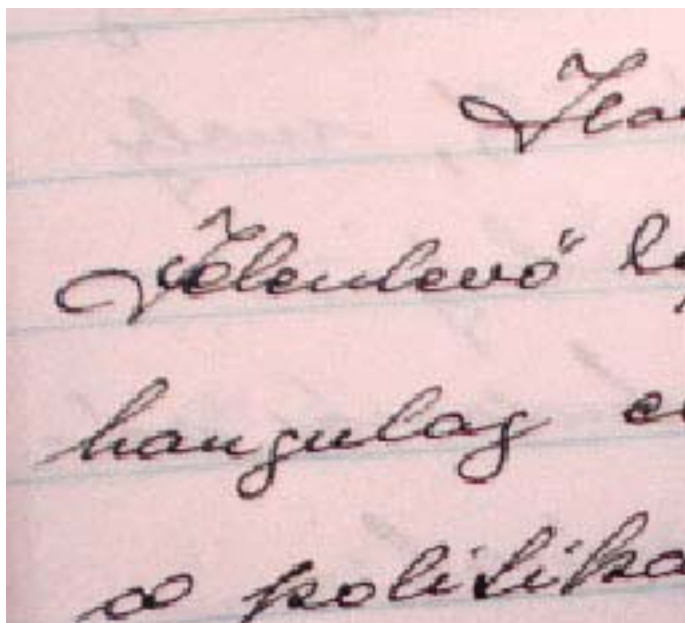 Jelenlevő
hangulag
a politika